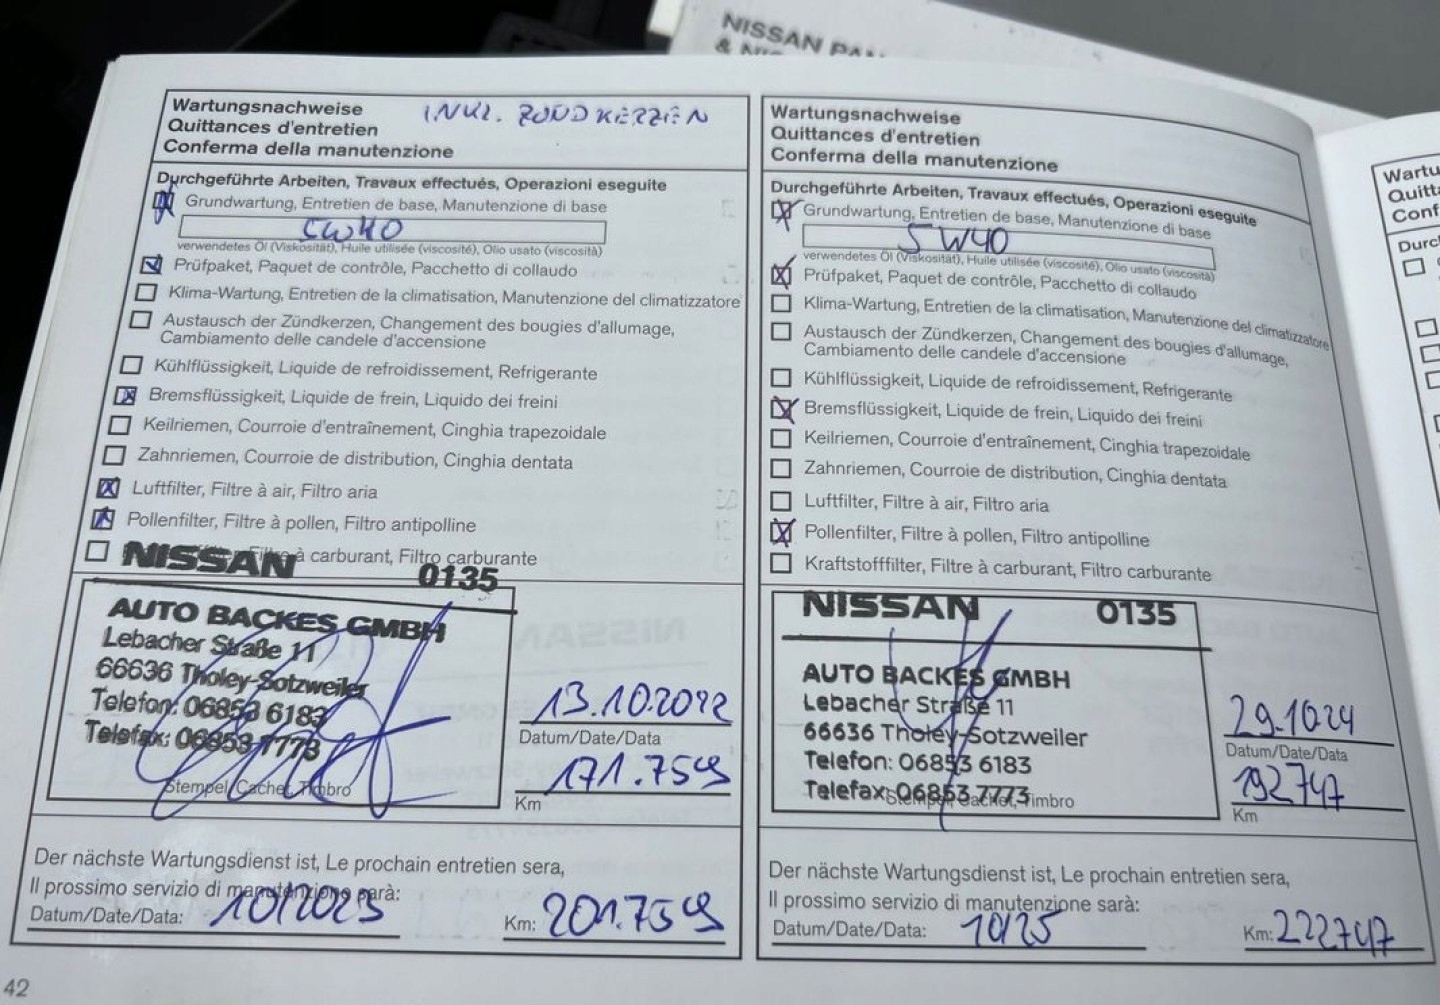 NISSAN PAN
& NIS
Wartungsnachweise
Quittances d'entretien
Conferma della manutenzione
INKL. ZÜNDKERZEN
Durchgeführte Arbeiten, Travaux effectués, Operazioni eseguite
Grundwartung, Entretien de base, Manutenzione di base
5W40
verwendetes Öl (Viskosität), Huile utilisée (viscosité), Olio usato (viscosità)
Prüfpaket, Paquet de contrôle, Pacchetto di collaudo
Klima-Wartung, Entretien de la climatisation, Manutenzione del climatizzatore
Austausch der Zündkerzen, Changement des bougies d'allumage,
Cambiamento delle candele d'accensione
Kühlflüssigkeit, Liquide de refroidissement, Refrigerante
Bremsflüssigkeit, Liquide de frein, Liquido dei freini
Keilriemen, Courroie d'entraînement, Cinghia trapezoidale
Zahnriemen, Courroie de distribution, Cinghia dentata
Luftfilter, Filtre à air, Filtro aria
Pollenfilter, Filtre à pollen, Filtro antipolline
Filtre à carburant, Filtro carburante
NISSAN 0135
AUTO BACKES GMBH
Lebacher Straße 11
66636 Tholey-Sotzweiler
Telefon: 06853 6183
Telefax: 06853 7773
Stempel, Cachet, Timbro
13.10.2022
Datum/Date/Data
171.759
Km
Der nächste Wartungsdienst ist, Le prochain entretien sera,
Il prossimo servizio di manutenzione sarà:
Datum/Date/Data: 10/2023 Km: 201.759
42
Wartungsnachweise
Quittances d'entretien
Conferma della manutenzione
Durchgeführte Arbeiten, Travaux effectués, Operazioni eseguite
Grundwartung, Entretien de base, Manutenzione di base
5W40
verwendetes Öl (Viskosität), Huile utilisée (viscosité), Olio usato (viscosità)
Prüfpaket, Paquet de contrôle, Pacchetto di collaudo
Klima-Wartung, Entretien de la climatisation, Manutenzione del climatizzatore
Austausch der Zündkerzen, Changement des bougies d'allumage,
Cambiamento delle candele d'accensione
Kühlflüssigkeit, Liquide de refroidissement, Refrigerante
Bremsflüssigkeit, Liquide de frein, Liquido dei freini
Keilriemen, Courroie d'entraînement, Cinghia trapezoidale
Zahnriemen, Courroie de distribution, Cinghia dentata
Luftfilter, Filtre à air, Filtro aria
Pollenfilter, Filtre à pollen, Filtro antipolline
Kraftstofffilter, Filtre à carburant, Filtro carburante
NISSAN 0135
AUTO BACKES GMBH
Lebacher Straße 11
66636 Tholey-Sotzweiler
Telefon: 06853 6183
Telefax: 06853 7773
Stempel, Cachet, Timbro
29.10.24
Datum/Date/Data
192747
Km
Der nächste Wartungsdienst ist, Le prochain entretien sera,
Il prossimo servizio di manutenzione sarà:
Datum/Date/Data: 10/25 Km: 222747
Wartu
Quitta
Conf
Durc